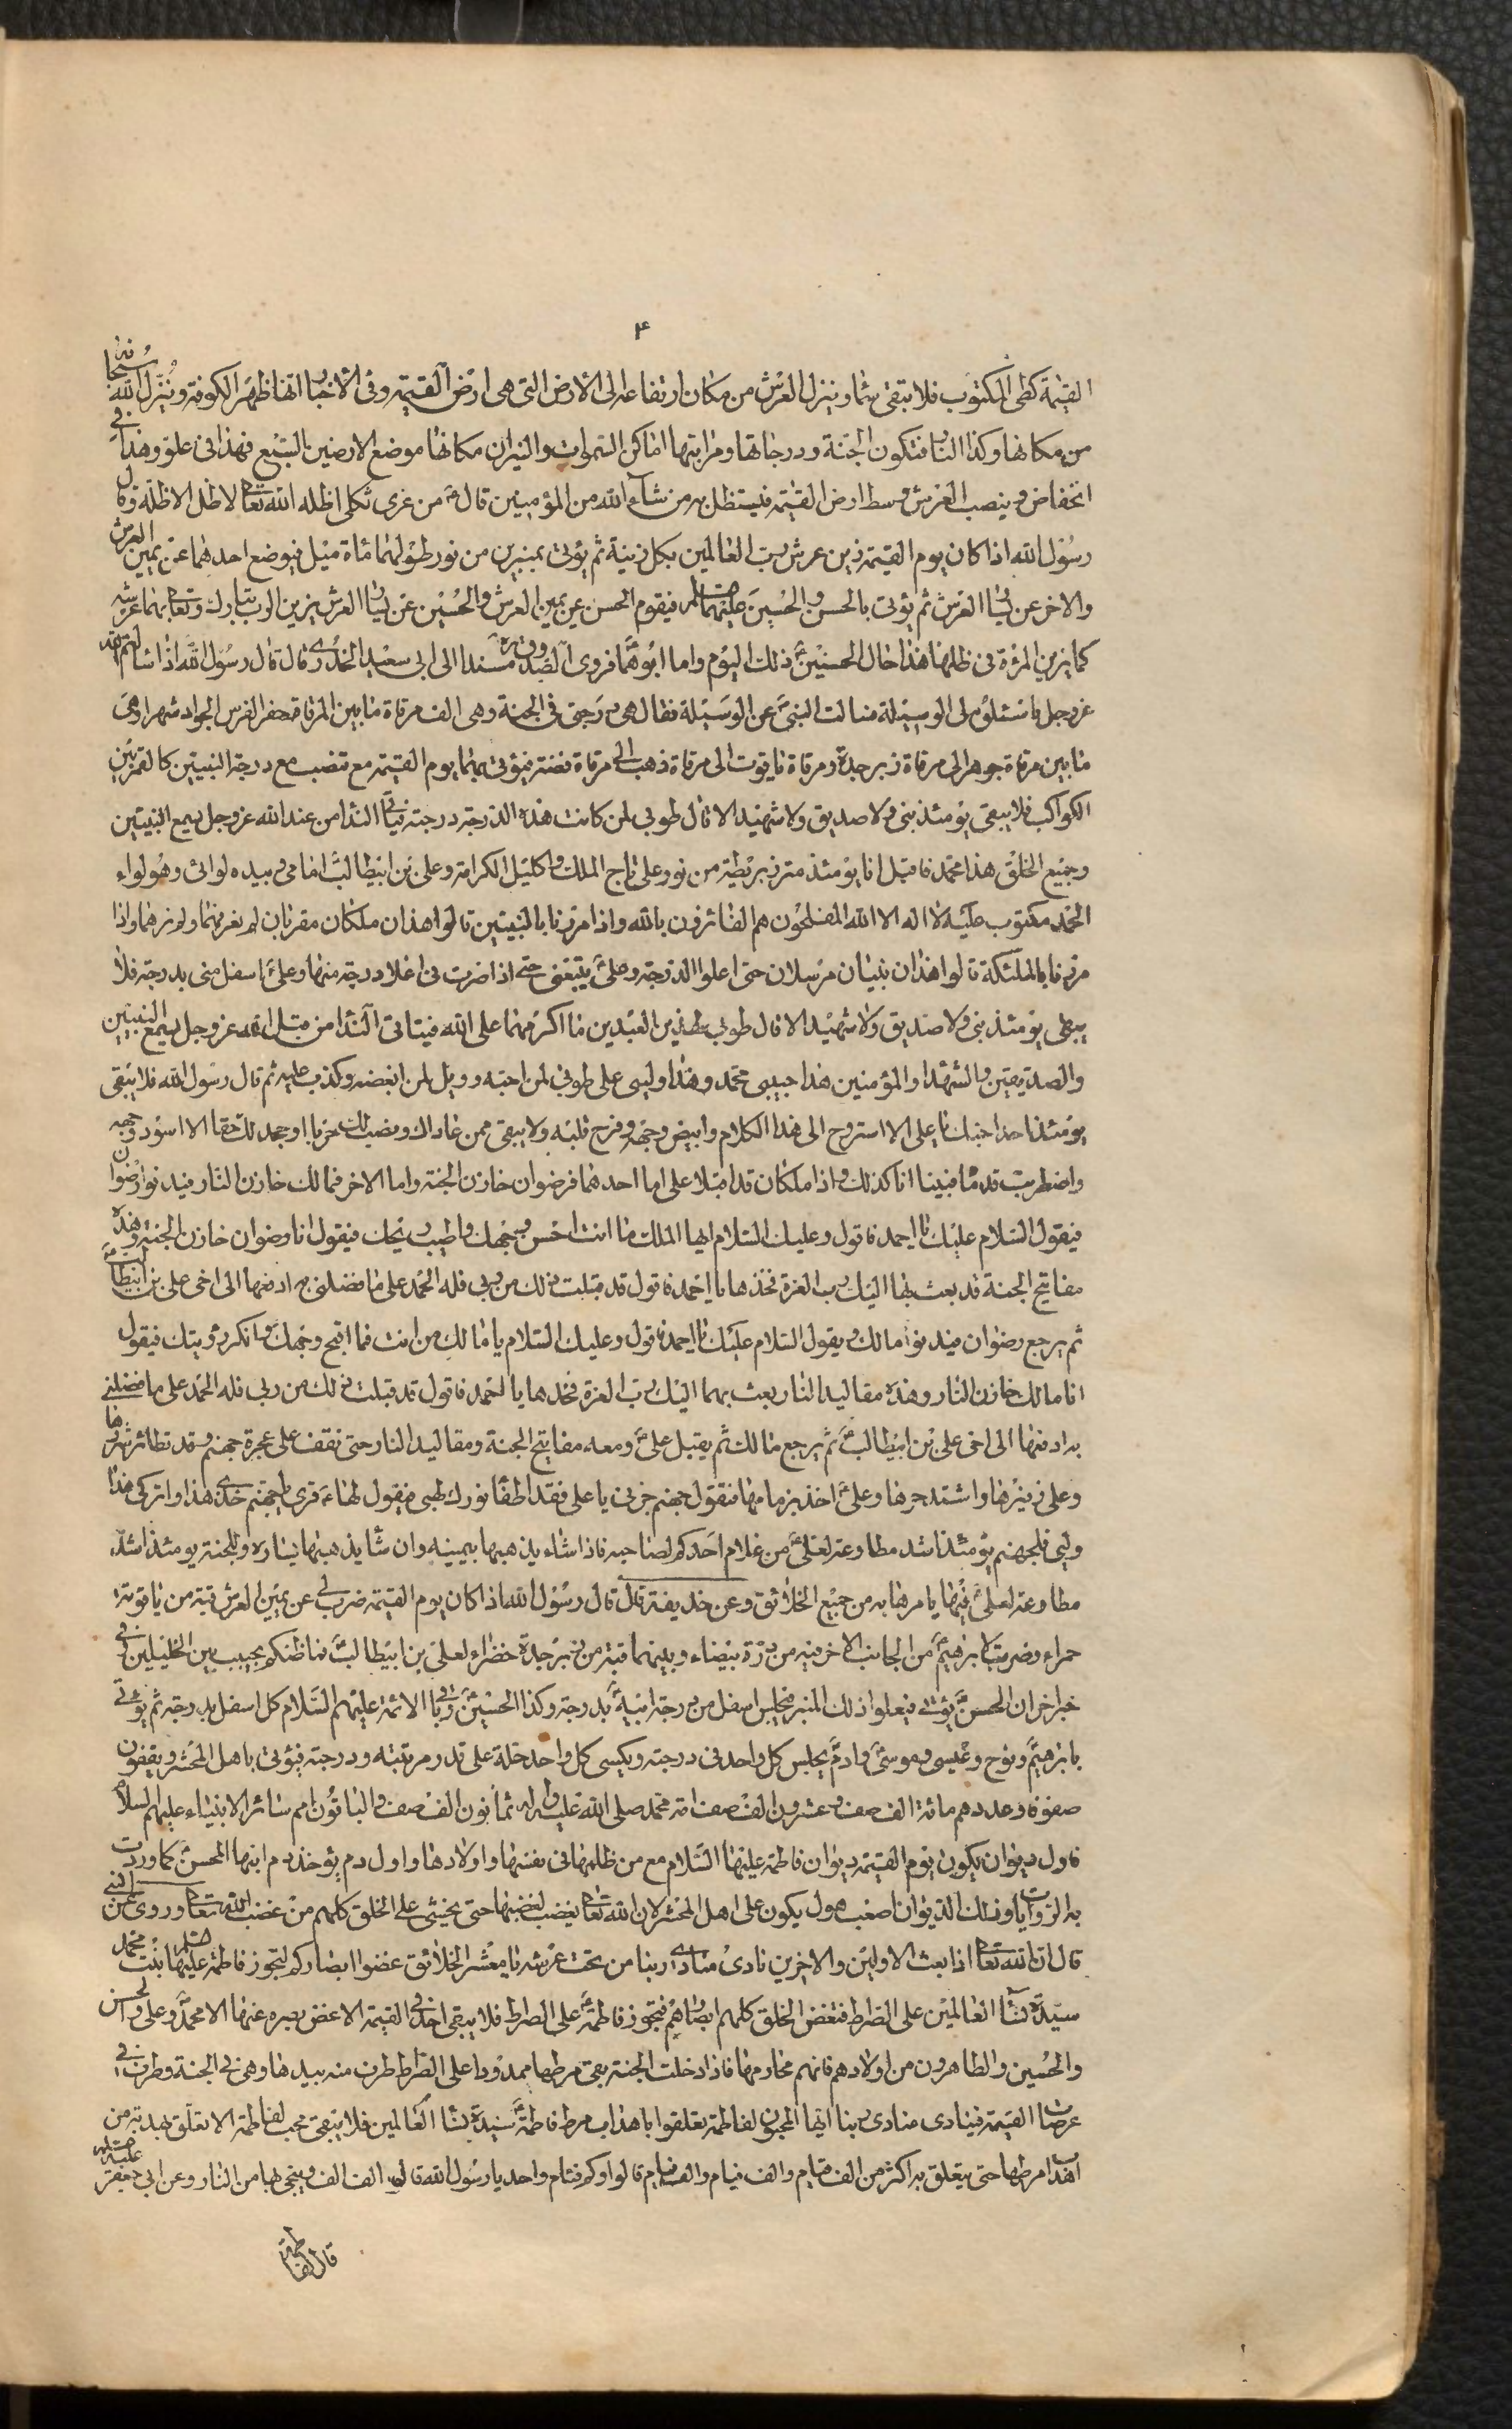 ۴
القيمة كطى المكتوب فلا تبقى سما وينزل العرش من مكان ارتفاعه الى الارض التى هى ارض القيمة وفى الاخبار انها ظهر الكوفة وينزل الله سبحانه
من مكانها وكذا النار فتكون الجنة ودرجاتها ومراتبها اماكن السموات والنيران مكانها موضع الارضين السبع فهذا فى علو وهذا فى
انخفاض وينصب العرش وسط ارض القيمة فيستظل به من شاء الله من المؤمنين قال ع من عزى ثكلى اظله الله تعا لا ظل الا ظله وقال
رسول الله اذا كان يوم القيمة زين عرش رب العالمين بكل زينة ثم يؤتى بمنبرين من نور طولهما مائة ميل فيوضع احدهما عن يمين العرش
والاخر عن يسار العرش ثم يؤتى بالحسن والحسين عليهما السلام فيقوم الحسن عن يمين العرش والحسين عن يسار العرش يزين الرب تبارك وتعا بهما عرشه
كما يزين المرئة فى ظلها هذا حال الحسنين ع ذلك اليوم واما ابوهما فروى الصدوق ره مسندا الى ابى سعيد الخدرى قال قال رسول الله اذا سالتم الله
عز وجل فاسئلوه لى الوسيلة فسالت النبى ص عن الوسيلة فقال هى درجتى فى الجنة وهى الف مرقاة ما بين المرقاة حفر الفرس الجواد شهرا وهى
ما بين مرقاة جوهر الى مرقاة زبرجدة ومرقاة ياقوت الى مرقاة ذهب الى مرقاة فضة فيؤتى بهما يوم القيمة مع تنصب مع درجة النبيين كالقمر بين
الكواكب فلا يبقى يومئذ نبى ولا صديق ولا شهيد الا قال طوبى لمن كانت هذه الدرجة درجته فياتى الندا من عند الله عز وجل يسمع النبيين
وجميع الخلق هذا محمد فاقبل انا يومئذ متزر بربطة من نور وعلى تاج الملك واكليل الكرامة وعلى بن ابيطالب امامى وبيده لوائى وهو لواء
الحمد مكتوب عليه لا اله الا الله المفلحون هم الفائزون بالله واذا مررنا بالنبيين قالوا هذان ملكان مقربان لم نعرفهما ولم نرهما واذا
مررنا بالملئكة قالوا هذان نبيان مرسلان حتى اعلوا الدرجة وعلى يتبعنى حتى اذا صرت فى اعلا درجة منها وعلى ع اسفل منى بدرجة فلا
يبقى يومئذ نبى ولا صديق ولا شهيد الا قال طوبى لهذين العبدين ما اكرمهما على الله فياتى الندا من قبل الله عز وجل يسمع النبيين
والصديقين والشهدا والمؤمنين هذا حبيبى محمد وهذا وليى على طوبى لمن احبه وويل لمن ابغضه وكذب عليه ثم قال رسول الله فلا يبقى
يومئذ احد احبك يا على الا استروح الى هذا الكلام وابيض وجهه وفرح قلبه ولا يبقى ممن عاداك ونصب لك حربا او جحد لك حقا الا اسود وجهه
واضطربت قدماه فبينا انا كذلك واذا ملكان قد اقبلا على اما احدهما فرضوان خازن الجنة واما الاخر فمالك خازن النار فيدنو رضوان
فيقول السلام عليك يا احمد فاقول وعليك السلام ايها الملك ما انت احسن وجهك واطيب ريحك فيقول انا رضوان خازن الجنة وهذه
مفاتيح الجنة قد بعث بها اليك رب العزة فخذها يا احمد فاقول قد قبلت ذلك من ربى فله الحمد على ما فضلنى به ادفعها الى اخى على بن ابيطالب
ثم يرجع رضوان فيدنو مالك ويقول السلام عليك يا احمد فاقول وعليك السلام يا مالك من انت فما اقبح وجهك وانكر رؤيتك فيقول
انا مالك خازن النار وهذه مقاليد النار بعث بهما اليك رب العزة فخذها يا احمد فاقول قد قبلت ذلك من ربى فله الحمد على ما فضلنى
به ادفعها الى اخى على بن ابيطالب ثم يرجع مالك ثم يقبل على ع ومعه مفاتيح الجنة ومقاليد النار حتى نقف على عجزة جهنم وقد تطائر شررها
وعلى زفيرها واشتد حرها وعلى ع اخذ بزمامها فتقول جهنم جزنى يا على فقد اطفأ نورك لهبى فيقول لها ع قرى يا جهنم خذى هذا واتركى هذا
وليى فلجهنم يومئذ اشد مطاوعة لعلى ع من غلام احدكم لصاحبه فاذا شاء يذهبها بيمينه وان شا يذهبها يساره وللجنة يومئذ اشد
مطاوعة لعلى ع فيها يامرها به من جميع الخلائق وعن حذيفة قال قال رسول الله اذا كان يوم القيمة ضرب لى عن يمين العرش قبة من ياقوتة
حمراء وضربت لابرهيم ع من الجانب الاخر قبة من درة بيضاء وبينهما قبة من زبرجدة خضراء لعلى بن ابيطالب ع فما ظنكم بحبيب بين الخليلين وفى
خبر اخر ان الحسن ع يؤتى فيعلوا ذلك المنبر فيجلس اسفل من درجة ابيه بدرجة وكذا الحسين ع وباقى الائمة عليهم السلام كل اسفل بدرجة ثم يؤتى
بابرهيم ونوح وعيسى وموسى ع وادم ع يجلس كل واحد فى درجته ويكسى كل واحد حلة على قدر مرتبته ودرجته فيؤتى باهل المحشر ويقفون
صفوفا وعددهم مائة الف صف وعشرون الف صف امة محمد صلى الله عليه واله ثمانون الف صف والباقون امم سائر الانبياء عليهم السلام
فاول ديوان يكون يوم القيمة ديوان فاطمة عليها السلام مع من ظلمها فى نفسها واولادها واول دم يؤخذ دم ابنها المحسن ع كما وردت
به الروايات وذلك الديوان اصعب هول يكون على اهل المحشر لان الله تعا يغضب لغضبها حتى يخشى على الخلق كلهم من غضب الله تعا وروى عن النبى
قال ان الله تعا اذا بعث الاولين والاخرين نادى منادى ربنا من تحت عرشه يا معشر الخلائق غضوا ابصاركم لتجوز فاطمة عليها السلام بنت محمد
سيدة نساء العالمين على الصراط فتغض الخلق كلهم ابصارهم فتجوز فاطمة ع على الصراط فلا يبقى احد فى القيمة الا غض بصره عنها الا محمد وعلى والحسن
والحسين والطاهرون من اولادهم فانهم محارمها فاذا دخلت الجنة بقى مرطها ممدودا على الصراط طرف منه بيدها وهى فى الجنة وطرف فى
عرصات القيمة فينادى منادى ربنا ايها المحبون لفاطمة تعلقوا باهداب مرط فاطمة ع سيدة نساء العالمين فلا يبقى محب لفاطمة الا تعلق بهدبة من
اهداب مرطها حتى يتعلق به اكثر من الف فئام والف فئام والف فئام قالوا وكم فئام واحد يا رسول الله قال الف الف وينجى بها من النار وعن ابى جعفر عليه السلام
قال لفاطمة